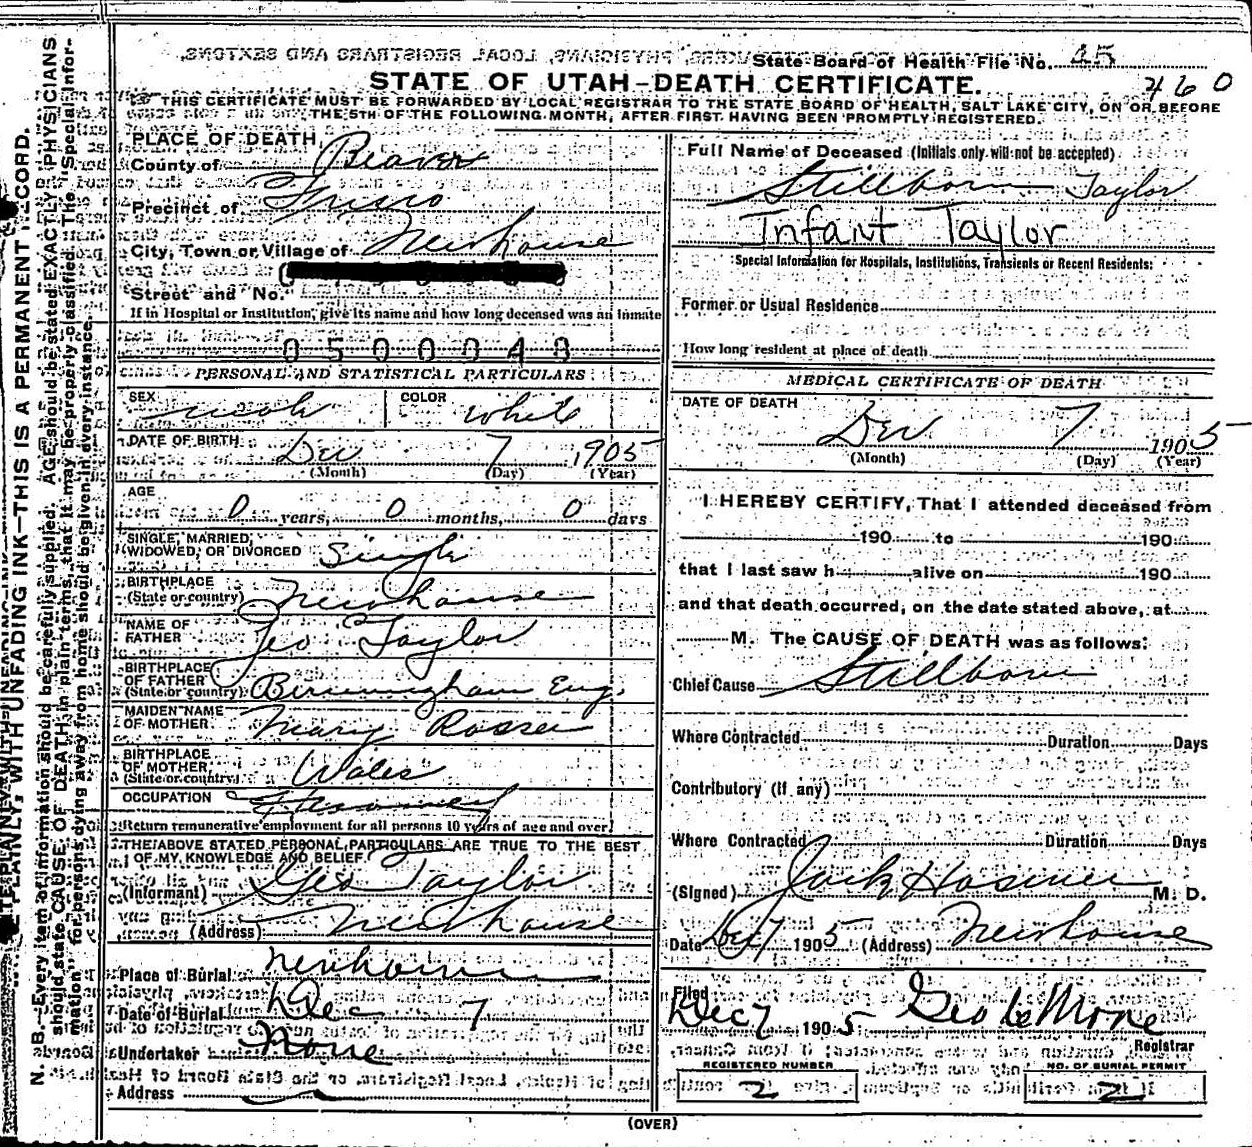 State Board of Health File No. 45
460
STATE OF UTAH—DEATH CERTIFICATE.
THIS CERTIFICATE MUST BE FORWARDED BY LOCAL REGISTRAR TO THE STATE BOARD OF HEALTH, SALT LAKE CITY, ON OR BEFORE
THE 5TH OF THE FOLLOWING MONTH, AFTER FIRST HAVING BEEN PROMPTLY REGISTERED.
PLACE OF DEATH,
County of Beaver
Precinct of Frisco
City, Town or Village of Newhouse
Street and No.
If in Hospital or Institution, give its name and how long deceased was an inmate
0500048
PERSONAL AND STATISTICAL PARTICULARS
SEX male
COLOR White
DATE OF BIRTH Dec 7 1905
(Month) (Day) (Year)
AGE
0 years, 0 months, 0 days
SINGLE, MARRIED,
WIDOWED, OR DIVORCED Single
BIRTHPLACE
(State or country) Newhouse
NAME OF
FATHER Geo Taylor
BIRTHPLACE
OF FATHER
(State or country) Birmingham Eng.
MAIDEN NAME
OF MOTHER Mary Rosser
BIRTHPLACE
OF MOTHER
(State or country) Wales
OCCUPATION
Return remunerative employment for all persons 10 years of age and over
THE ABOVE STATED PERSONAL PARTICULARS ARE TRUE TO THE BEST
OF MY KNOWLEDGE AND BELIEF.
(Informant) Geo Taylor
(Address) Newhouse
Place of Burial Newhouse
Date of Burial Dec 7
Undertaker None
Address
Full Name of Deceased (Initials only will not be accepted)
Stillborn Taylor
Infant Taylor
Special Information for Hospitals, Institutions, Transients or Recent Residents:
Former or Usual Residence
How long resident at place of death
MEDICAL CERTIFICATE OF DEATH
DATE OF DEATH
Dec 7 1905
(Month) (Day) (Year)
I HEREBY CERTIFY, That I attended deceased from
190 to 190
that I last saw h alive on 190
and that death occurred, on the date stated above, at
M. The CAUSE OF DEATH was as follows:
Chief Cause Stillborn
Where Contracted Duration Days
Contributory (If any)
Where Contracted Duration Days
(Signed) Jack Hosmer M. D.
Date Dec 7 1905 (Address) Newhouse
Filed
Dec 7 1905 Geo
Registrar
REGISTERED NUMBER
2
NO. OF BURIAL PERMIT
2
(OVER)
WRITE PLAINLY, WITH UNFADING INK—THIS IS A PERMANENT RECORD.
N. B.—Every item of information should be carefully supplied. AGE should be stated EXACTLY. PHYSICIANS
should state CAUSE OF DEATH in plain terms, that it may be properly classified. The "Special Infor-
mation" for persons dying away from home should be given in every instance.